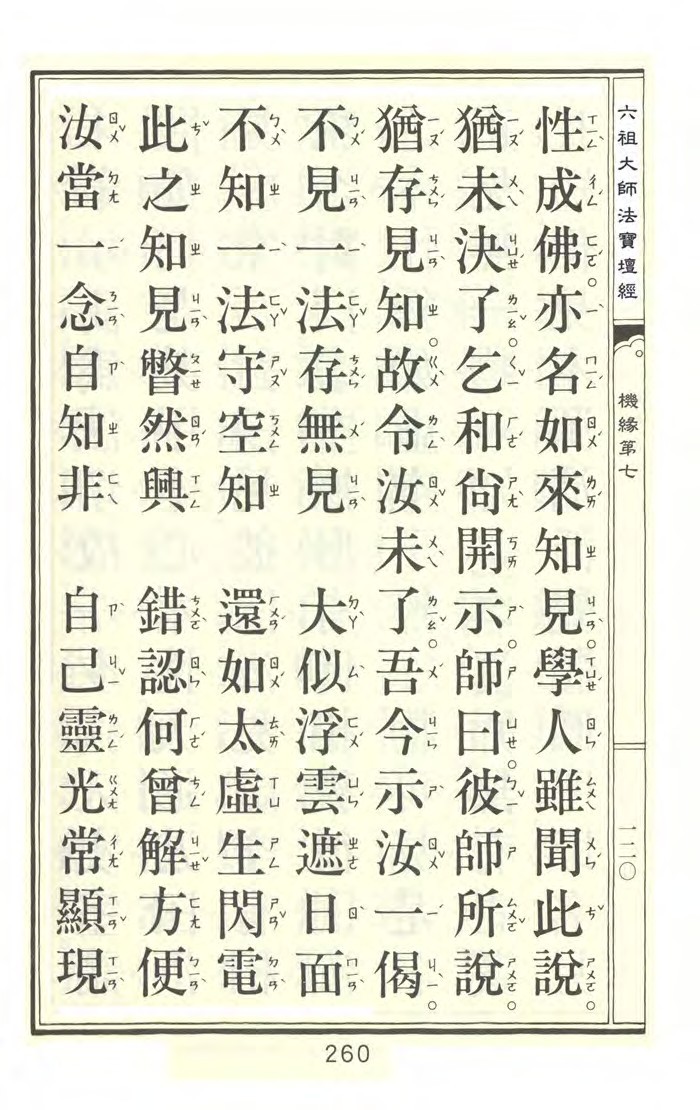 六祖大師法寶壇經
機緣第七
一二〇
性成佛。亦名如來知見。學人雖聞此說。
猶未決了。乞和尚開示。師曰。彼師所說。
猶存見知。故令汝未了。吾今示汝一偈。
不見一法存無見 大似浮雲遮日面
不知一法守空知 還如太虛生閃電
此之知見瞥然興 錯認何曾解方便
汝當一念自知非 自己靈光常顯現
260